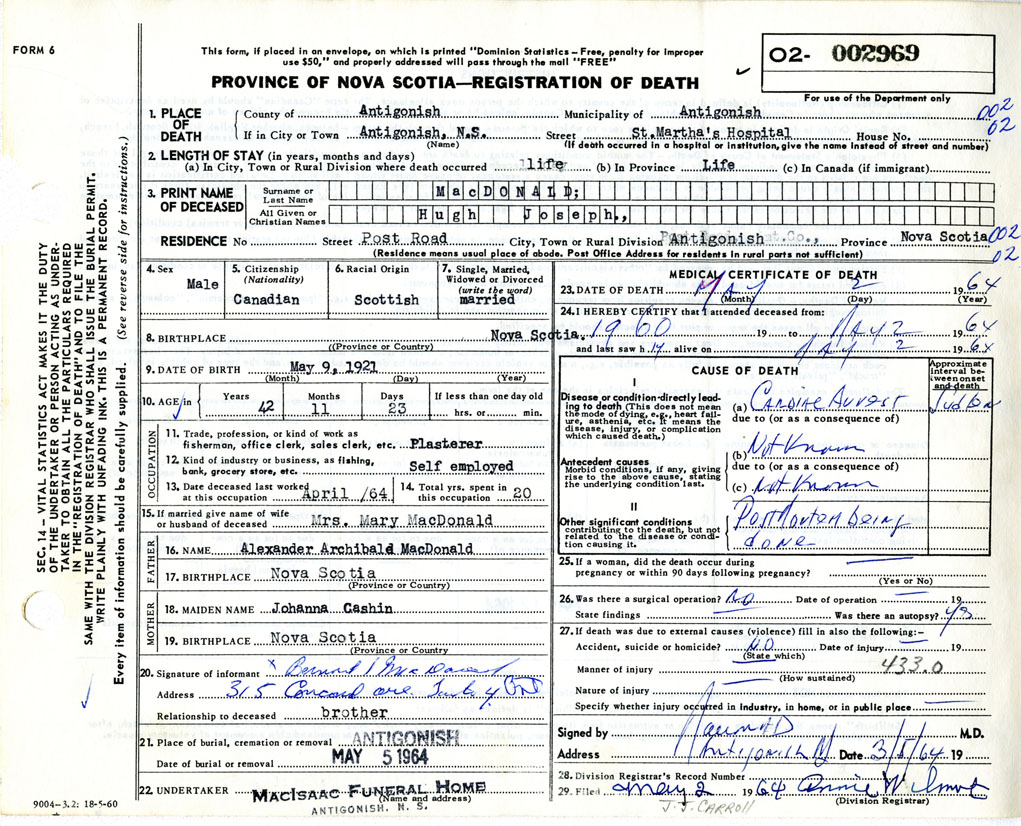 FORM 6
This form, if placed in an envelope, on which is printed "Dominion Statistics – Free, penalty for improper
use $50," and properly addressed will pass through the mail "FREE"
PROVINCE OF NOVA SCOTIA—REGISTRATION OF DEATH
02- 002969
For use of the Department only
002
02
SEC. 14 – VITAL STATISTICS ACT MAKES IT THE DUTY
OF THE UNDERTAKER OR PERSON ACTING AS UNDER-
TAKER TO OBTAIN ALL THE PARTICULARS REQUIRED
IN THE "REGISTRATION OF DEATH" AND TO FILE THE
SAME WITH THE DIVISION REGISTRAR WHO SHALL ISSUE THE BURIAL PERMIT.
WRITE PLAINLY WITH UNFADING INK. THIS IS A PERMANENT RECORD.
Every item of information should be carefully supplied. (See reverse side for instructions.)
1. PLACE OF DEATH
County of Antigonish Municipality of Antigonish
If in City or Town Antigonish, N.S. Street St.Martha's Hospital House No.
(Name) (If death occurred in a hospital or institution, give the name instead of street and number)
2. LENGTH OF STAY (in years, months and days)
(a) In City, Town or Rural Division where death occurred life (b) In Province Life (c) In Canada (if immigrant)
3. PRINT NAME OF DECEASED
Surname or Last Name MacDONALD;
All Given or Christian Names Hugh Joseph.,
RESIDENCE No Street Post Road City, Town or Rural Division Antigonish Co., Province Nova Scotia 002
02
(Residence means usual place of abode. Post Office Address for residents in rural parts not sufficient)
4. Sex Male
5. Citizenship (Nationality) Canadian
6. Racial Origin Scottish
7. Single, Married, Widowed or Divorced (write the word) married
8. BIRTHPLACE Nova Scotia.
(Province or Country)
9. DATE OF BIRTH May 9, 1921
(Month) (Day) (Year)
10. AGE in Years 42 Months 11 Days 23 If less than one day old hrs. or min.
OCCUPATION
11. Trade, profession, or kind of work as
fisherman, office clerk, sales clerk, etc. Plasterer
12. Kind of industry or business, as fishing,
bank, grocery store, etc. Self employed
13. Date deceased last worked at this occupation April /64 14. Total yrs. spent in this occupation 20
15. If married give name of wife
or husband of deceased Mrs. Mary MacDonald
FATHER
16. NAME Alexander Archibald MacDonald
17. BIRTHPLACE Nova Scotia
(Province or Country)
MOTHER
18. MAIDEN NAME Johanna Cashin
19. BIRTHPLACE Nova Scotia
(Province or Country)
20. Signature of informant x Bernard MacDonald
Address 315 Concord ave. Ont
Relationship to deceased brother
21. Place of burial, cremation or removal ANTIGONISH
Date of burial or removal MAY 5 1964
22. UNDERTAKER MACISAAC FUNERAL HOME
(Name and address)
ANTIGONISH, N. S.
9004-3.2: 18-5-60
MEDICAL CERTIFICATE OF DEATH
23. DATE OF DEATH MAY 2 1964
(Month) (Day) (Year)
24. I HEREBY CERTIFY that I attended deceased from:
1960 19 to MAY 2 1964
and last saw him alive on MAY 2 1964
CAUSE OF DEATH
Approximate interval between onset and death
I
Disease or condition directly leading to death (This does not mean the mode of dying, e.g., heart failure, asthenia, etc. It means the disease, injury, or complication which caused death.)
(a) Cardiac Arrest Sudden
due to (or as a consequence of)
Antecedent causes
Morbid conditions, if any, giving rise to the above cause, stating the underlying condition last.
(b) Not Known
due to (or as a consequence of)
(c) Not Known
II
Other significant conditions contributing to the death, but not related to the disease or condition causing it.
Post Mortem being
done
25. If a woman, did the death occur during
pregnancy or within 90 days following pregnancy?
(Yes or No)
26. Was there a surgical operation? No Date of operation 19
State findings Was there an autopsy? yes
27. If death was due to external causes (violence) fill in also the following:–
Accident, suicide or homicide? NO Date of injury 19
(State which)
Manner of injury 433.0
(How sustained)
Nature of injury
Specify whether injury occurred in industry, in home, or in public place
Signed by M.D.
Address Antigonish Date 3/5/64 19
28. Division Registrar's Record Number
29. Filed May 2 1964 Annie
(Division Registrar)
J. J. CARROLL